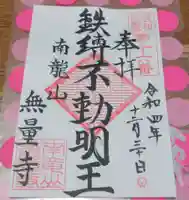 奉拝
令和四年
十二月二十日
鉄縛不動明王
南龍山
無量寺